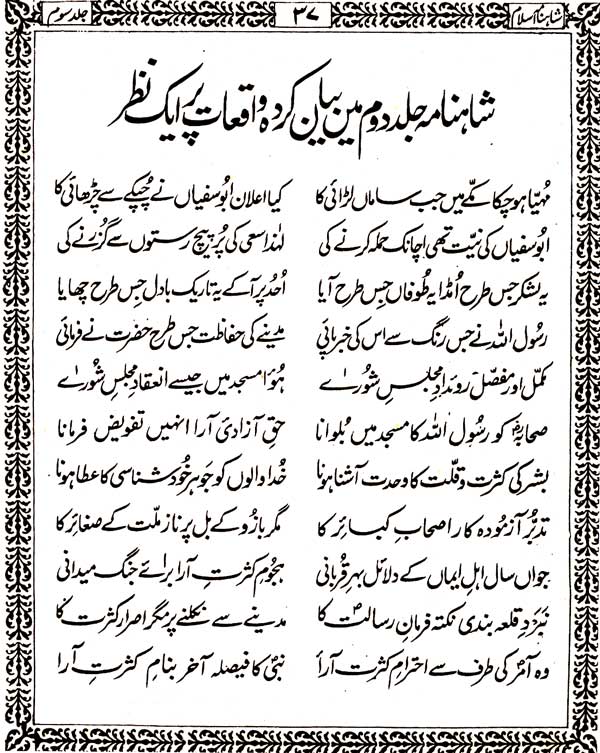 شاہنامہ اسلام ۳۷ جلد سوم
شاہنامہ جلد دوم میں بیان کردہ واقعات پر ایک نظر
مُہیّا ہو چکا مکّے میں جب ساماں لڑائی کا کیا اعلان ابوسفیاں نے چُپکے سے چڑھائی کا
ابوسفیاں کی نیّت تھی اچانک حملہ کرنے کی لہٰذا سعی کی پُر پیچ رستوں سے گُزرنے کی
یہ لشکر جس طرح اُمڈا یہ طُوفاں جس طرح آیا اُحد پر آ کے یہ تاریک بادل جس طرح چھایا
رسول اللہ نے جس رنگ سے اس کی خبر پائی مدینے کی حفاظت جس طرح حضرت نے فرمائی
مکمل اور مفصّل روئدادِ مجلسِ شورٰے ہُوا مسجد میں جیسے انعقادِ مجلسِ شورٰے
صحابہؓ کو رسُول اللہ کا مسجد میں بُلوانا حقِ آزادیٔ آرا انہیں تفویض فرمانا
بشر کی کثرت و قلّت کا وحدت آشنا ہونا خُدا والوں کو جوہر خُود شناسی کا عطا ہونا
تدبّر آزمودہ کار اصحابِ کبائر کا مگر بازُو کے بل پر ناز ملّت کے صغائر کا
جواں سال اہلِ ایماں کے دلائل بہرِ قُربانی ہجومِ کثرتِ آرا برائے جنگِ میدانی
نبَردِ قلعہ بندی نکتہ فرمانِ رسالتؐ کا مدینے سے نکلنے پر مگر اصرار کثرت کا
وہ آمر کی طرف سے احترامِ کثرتِ آرا نبیؐ کا فیصلہ آخر بنامِ کثرتِ آرا